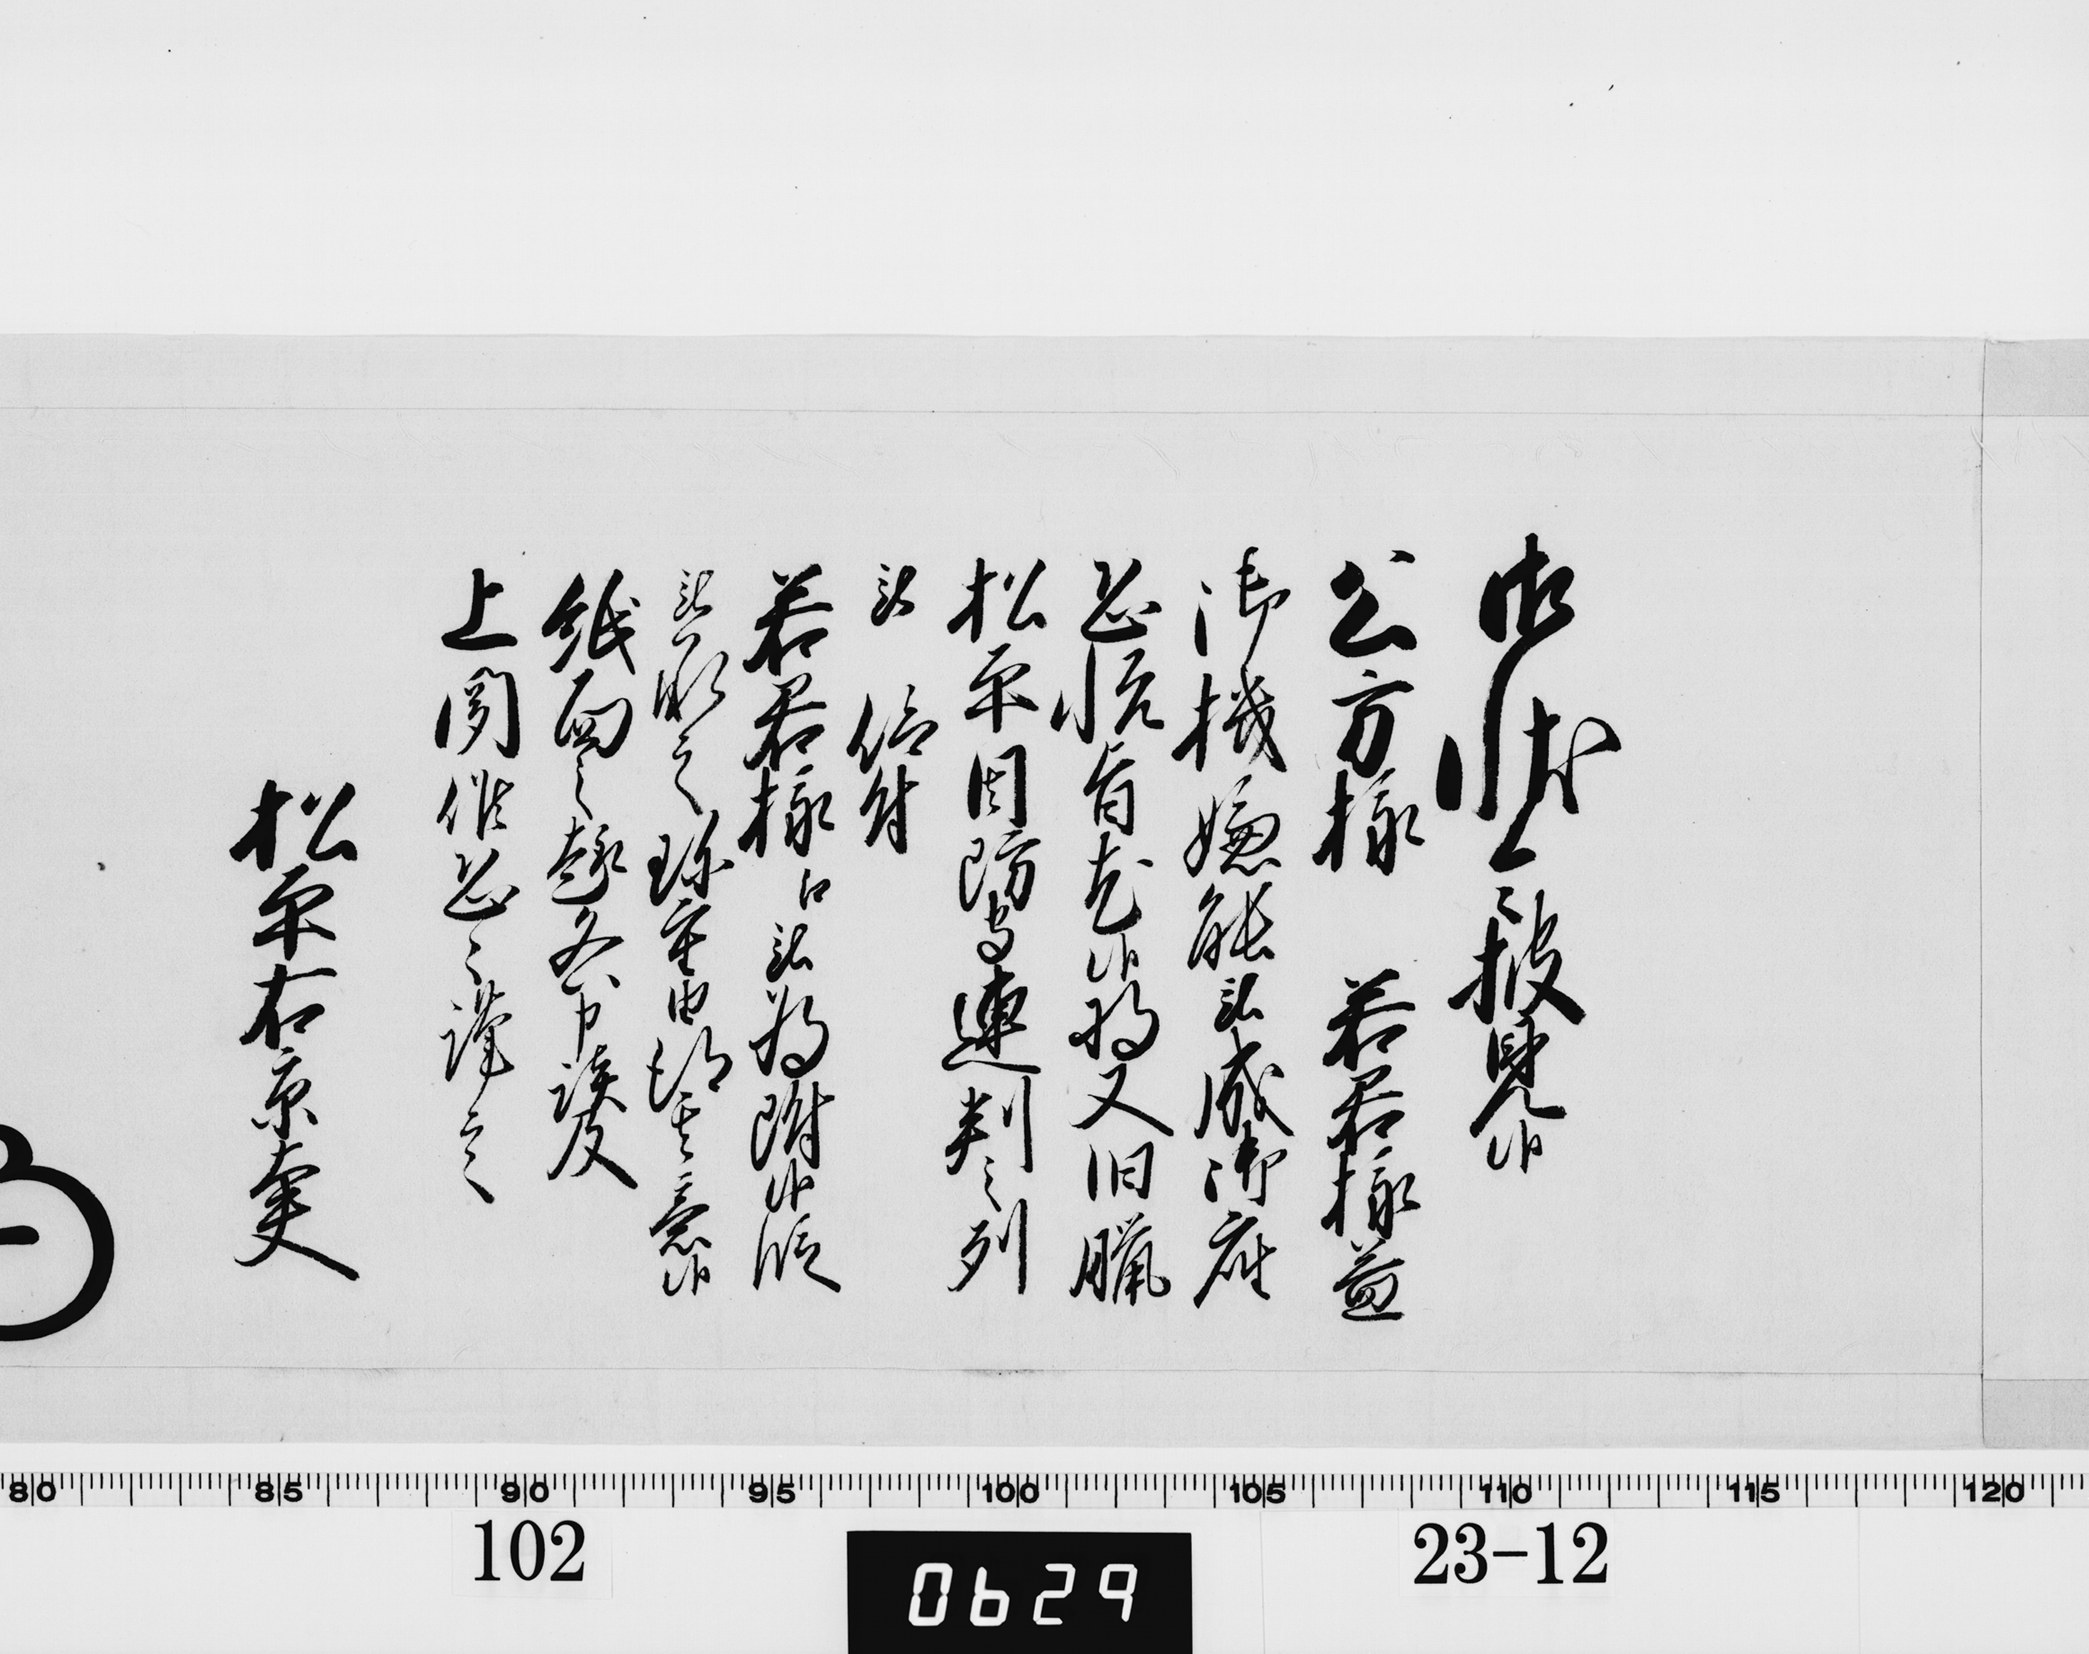 御状令披見候
公方様 若君様益
御機嫌能被成御座
恐悦旨尤候将又旧臘
松平周防守連判之列
被 仰付
若君様江被為附候段
被承之珍重由得其意候
紙面之趣各申談及
上聞候恐々謹言
松平右京大夫
80 85 90 95 100 105 110 115 120
102
0629
23-12